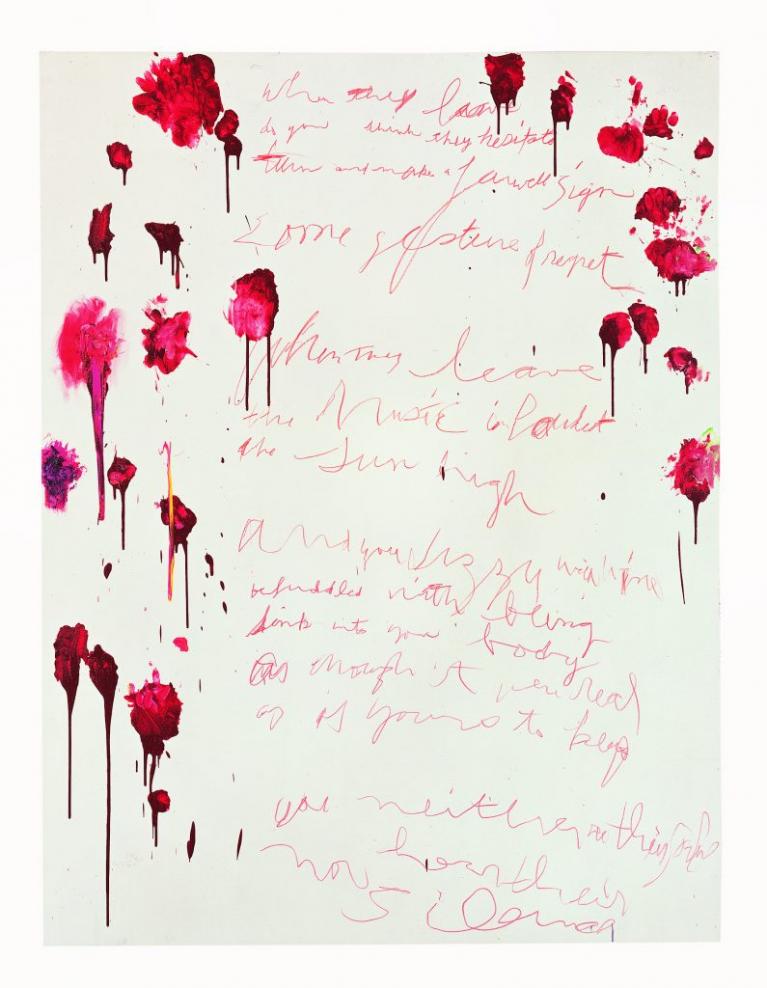 When they leave
do you think they hesitate
turn and make a farwell sign
Some gesture of regret
When they leave
the Music is loudest
the sun high
And you dizzy with wine
befuddled with being
sink into your body
as though it were real
as if yours to keep
you neither see their
nor hear their
Silence